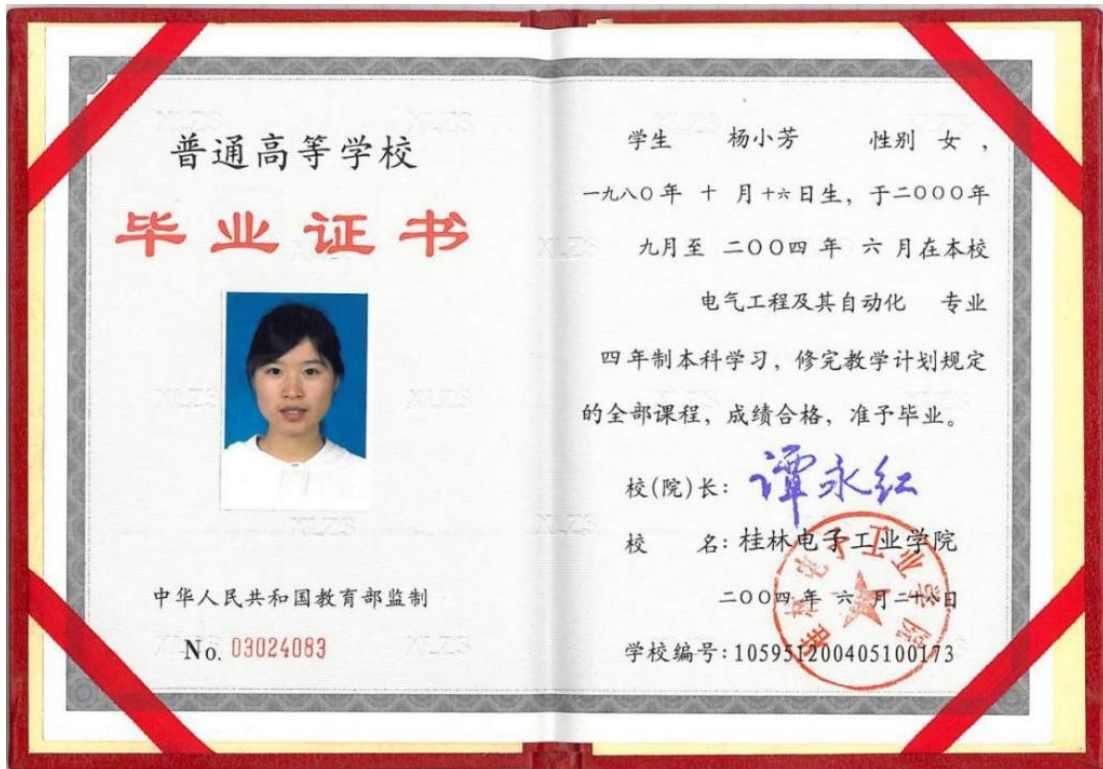 普通高等学校
毕业证书
中华人民共和国教育部监制
No. 03024083
学生 杨小芳 性别 女,
一九八〇年 十 月十六日生, 于二〇〇〇年
九月至 二〇〇四 年 六 月在本校
电气工程及其自动化 专业
四年制本科学习, 修完教学计划规定
的全部课程, 成绩合格, 准予毕业。
校(院)长: 谭永红
校 名: 桂林电子工业学院
二〇〇四 年 六 月二十八日
学校编号: 105951200405100173
桂林电子工业学院